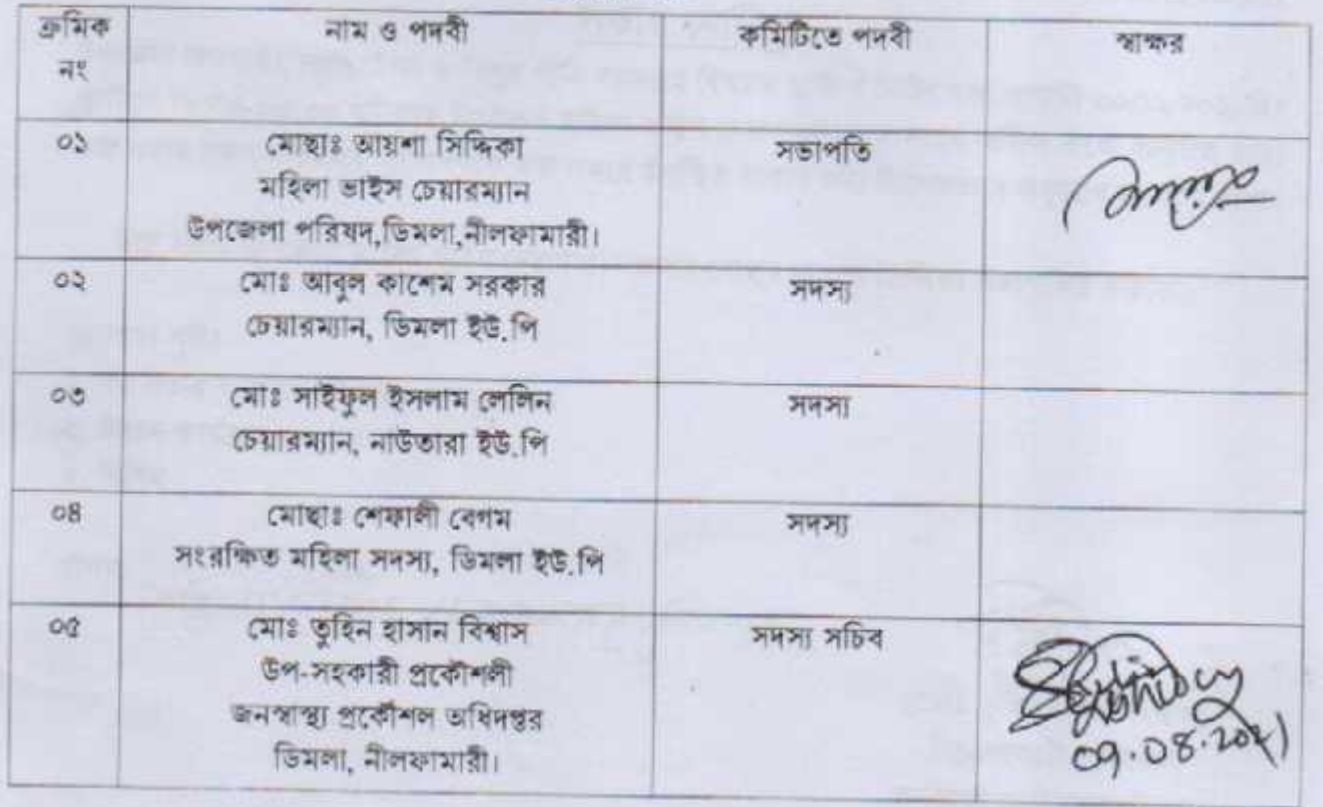 ক্রমিক নং
নাম ও পদবী
কমিটিতে পদবী
স্বাক্ষর
০১
মোছাঃ আয়শা সিদ্দিকা
মহিলা ভাইস চেয়ারম্যান
উপজেলা পরিষদ,ডিমলা,নীলফামারী।
সভাপতি
০২
মোঃ আবুল কাশেম সরকার
চেয়ারম্যান, ডিমলা ইউ.পি
সদস্য
০৩
মোঃ সাইফুল ইসলাম লেলিন
চেয়ারম্যান, নাউতারা ইউ.পি
সদস্য
০৪
মোছাঃ শেফালী বেগম
সংরক্ষিত মহিলা সদস্য, ডিমলা ইউ.পি
সদস্য
০৫
মোঃ তুহিন হাসান বিশ্বাস
উপ-সহকারী প্রকৌশলী
জনস্বাস্থ্য প্রকৌশল অধিদপ্তর
ডিমলা, নীলফামারী।
সদস্য সচিব
09.08.2021